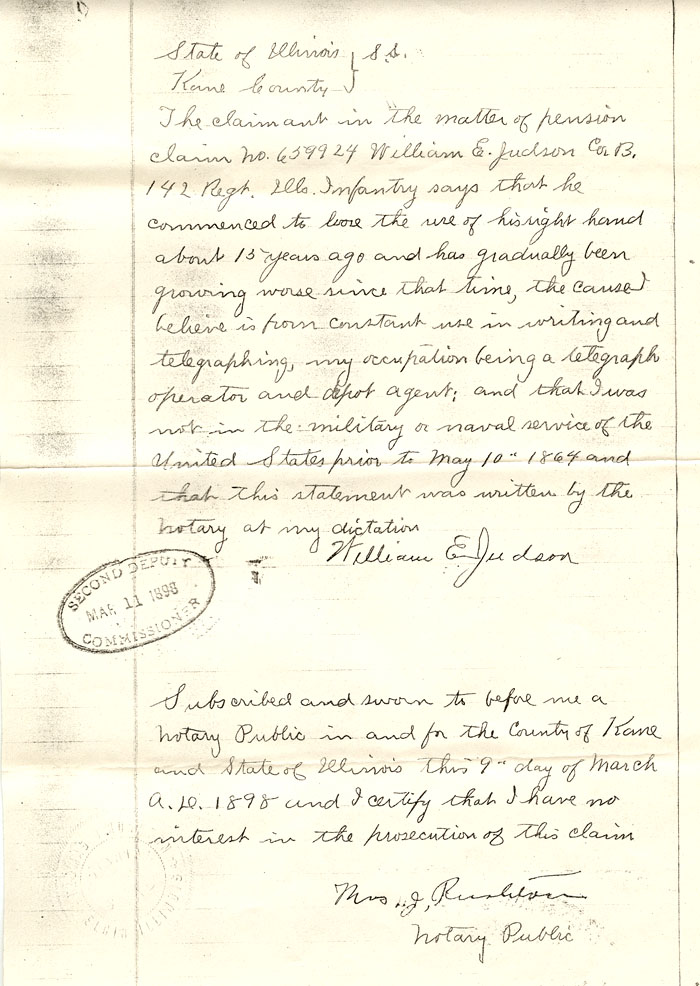 State of Illinois } S.S.
Kane County
The claimant in the matter of pension
claim No. 659924 William E. Judson Co. B.
142 Regt. Ills. Infantry says that he
commenced to loose the use of his right hand
about 15 years ago and has gradually been
growing worse since that time, the cause I
believe is from constant use in writing and
telegraphing, my occupation being a telegraph
operator and depot agent; and that I was
not in the military or naval service of the
United States prior to May 10" 1864 and
that this statement was written by the
Notary at my dictation
William E Judson
SECOND DEPUTY
MAR 11 1898
COMMISSIONER
Subscribed and sworn to before me a
Notary Public in and for the County of Kane
and State of Illinois this 9" day of March
A.D. 1898 and I certify that I have no
interest in the prosecution of this claim
J. Rushton
Notary Public